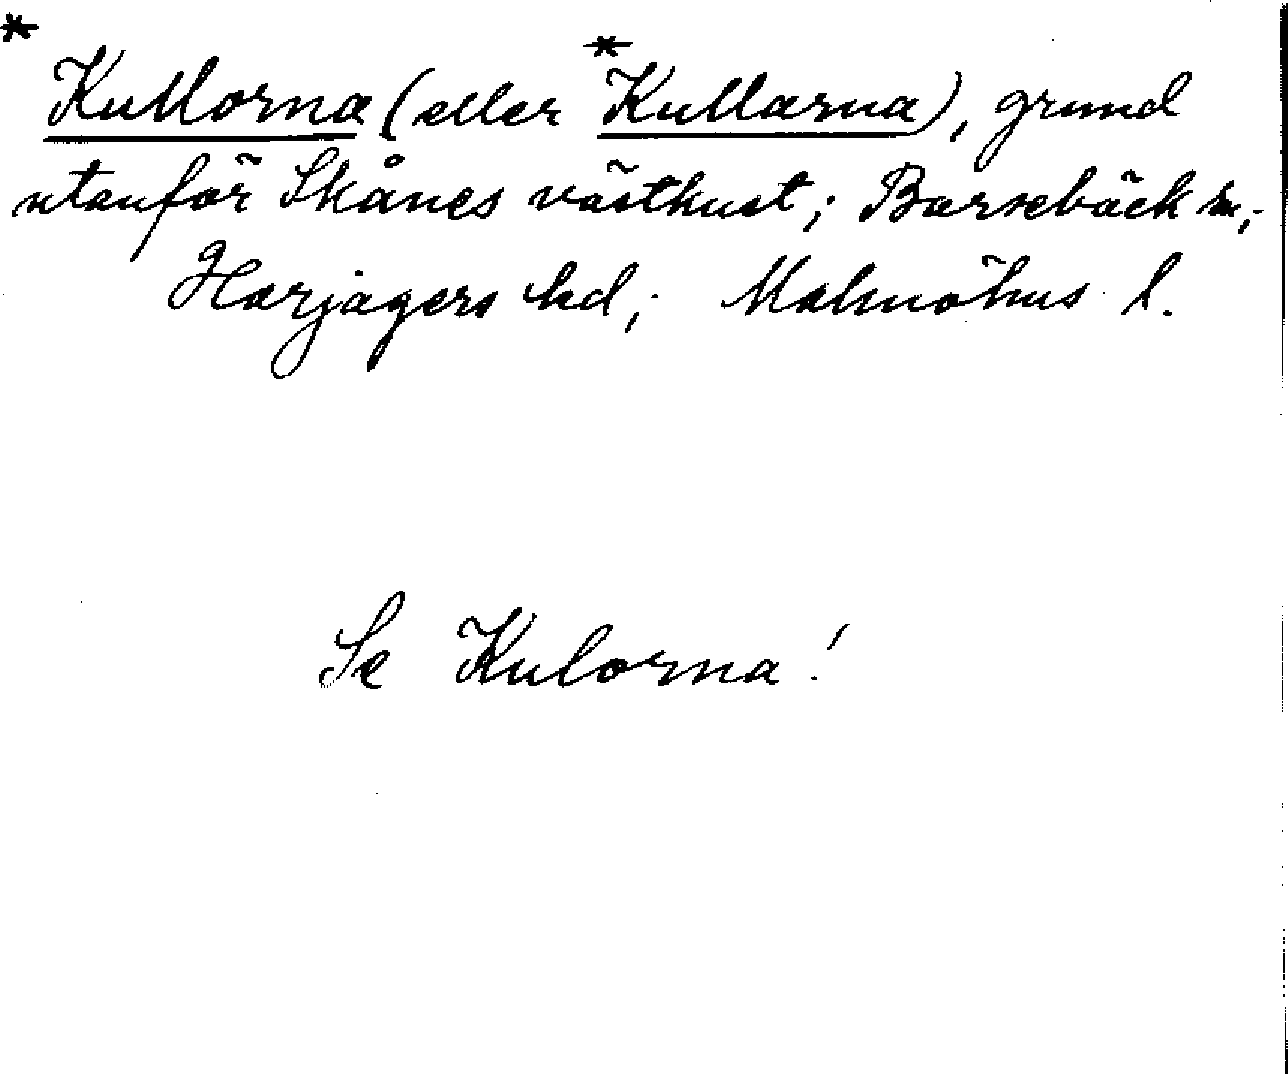 *Kullorna (eller *Kullarna), grund
utanför Skånes västkust; Barsebäck sn,
Harjagers hd; Malmöhus l.
Se Kulorna!